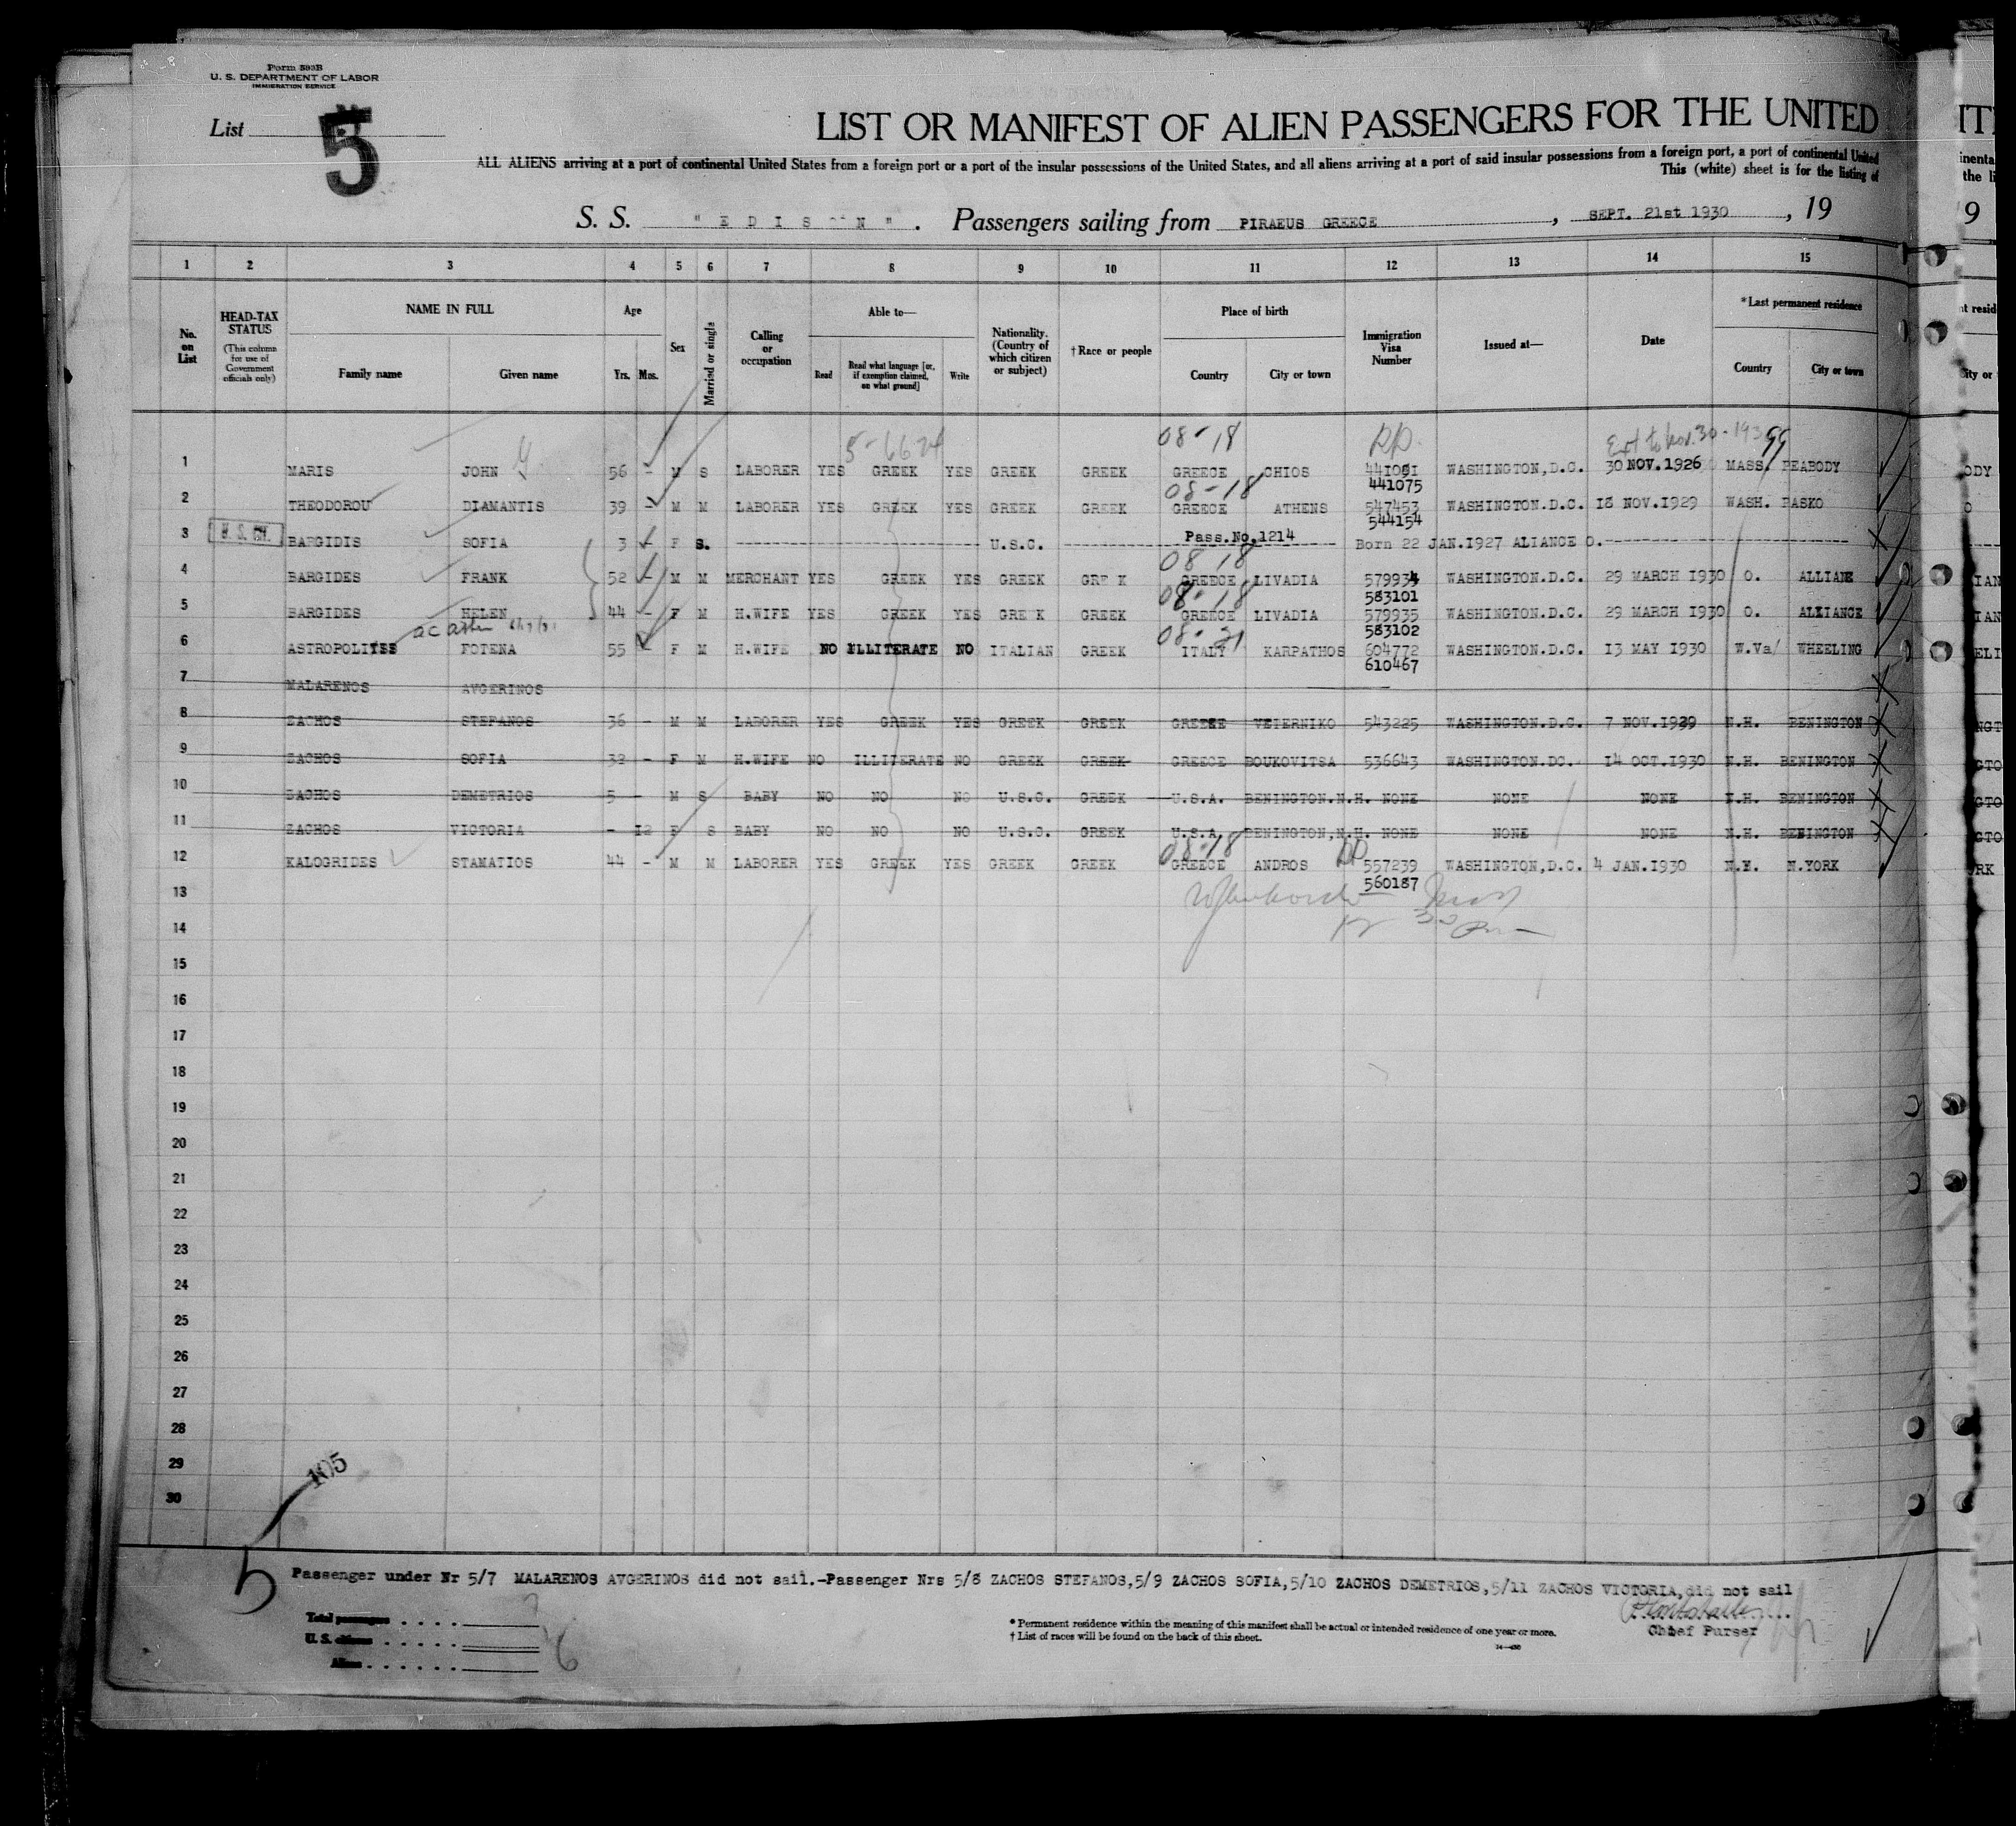 Form 593B
U. S. DEPARTMENT OF LABOR
IMMIGRATION SERVICE
List 5
LIST OR MANIFEST OF ALIEN PASSENGERS FOR THE UNITED
ALL ALIENS arriving at a port of continental United States from a foreign port or a port of the insular possessions of the United States, and all aliens arriving at a port of said insular possessions from a foreign port, a port of continental United
This (white) sheet is for the listing of
S. S. "EDISON". Passengers sailing from PIRAEUS GREECE, SEPT. 21st 1930, 19
1 2 3 4 5 6 7 8 9 10 11 12 13 14 15
No. on List
HEAD-TAX STATUS (This column for use of Government officials only)
NAME IN FULL
Family name Given name
Age
Yrs. Mos.
Sex
Married or single
Calling or occupation
Able to—
Read Read what language [or, if exemption claimed, on what ground] Write
Nationality. (Country of which citizen or subject)
† Race or people
Place of birth
Country City or town
Immigration Visa Number
Issued at—
Date
*Last permanent residence
Country City or town
5-6624 08-18 Ext to Nov. 30-193
1 MARIS JOHN 56 - M S LABORER YES GREEK YES GREEK GREEK GREECE CHIOS 441051 WASHINGTON,D.C. 30 NOV.1926 MASS. PEABODY
08-18 441075
2 THEODOROU DIAMANTIS 39 - M M LABORER YES GREEK YES GREEK GREEK GREECE ATHENS 547453 WASHINGTON.D.C. 18 NOV.1929 WASH. PASKO
544154
3 U.S.CIT. BARGIDIS SOFIA 3 - F S. U.S.C. Pass.No.1214 Born 22 JAN.1927 ALIANCE O.
08 18
4 BARGIDES FRANK 52 - M M MERCHANT YES GREEK YES GREEK GRE K GREECE LIVADIA 579934 WASHINGTON.D.C. 29 MARCH 1930 O. ALLIANE
08-18 583101
5 BARGIDES HELEN 44 - F M H.WIFE YES GREEK YES GRE K GREEK GREECE LIVADIA 579935 WASHINGTON.D.C. 29 MARCH 1930 O. ALLIANCE
08-21 583102
6 ASTROPOLITES FOTENA 55 - F M H.WIFE NO ILLITERATE NO ITALIAN GREEK ITALY KARPATHOS 604772 WASHINGTON.D.C. 13 MAY 1930 W.Va/ WHEELING
610467
7 MALARENOS AVGERINOS
8 ZACHOS STEFANOS 36 - M M LABORER YES GREEK YES GREEK GREEK GREECE VETERNIKO 543225 WASHINGTON.D.C. 7 NOV.1929 N.H. BENINGTON
9 ZACHOS SOFIA 32 - F M H.WIFE NO ILLITERATE NO GREEK GREEK GREECE BOUKOVITSA 536643 WASHINGTON.DC. 14 OCT.1930 N.H. BENINGTON
10 ZACHOS DEMETRIOS 5 - M S BABY NO NO NO U.S.C. GREEK U.S.A. BENINGTON.N.H. NONE NONE NONE N.H. BENINGTON
11 ZACHOS VICTORIA - 12 F S BABY NO NO NO U.S.C. GREEK U.S.A. BENINGTON,N.H. NONE NONE NONE N.H. BENINGTON
08-18
12 KALOGRIDES STAMATIOS 44 - M M LABORER YES GREEK YES GREEK GREEK GREECE ANDROS 557239 WASHINGTON,D.C. 4 JAN.1930 N.Y. N.YORK
13 560187
14
15
16
17
18
19
20
21
22
23
24
25
26
27
28
29
30
105
5
Passenger under Nr 5/7 MALARENOS AVGERINOS did not sail.-Passenger Nrs 5/8 ZACHOS STEFANOS,5/9 ZACHOS SOFIA,5/10 ZACHOS DEMETRIOS,5/11 ZACHOS VICTORIA,did not sail
Total passengers
U. S. citizens
Aliens
6
* Permanent residence within the meaning of this manifest shall be actual or intended residence of one year or more.
† List of races will be found on the back of this sheet.
Chief Purser